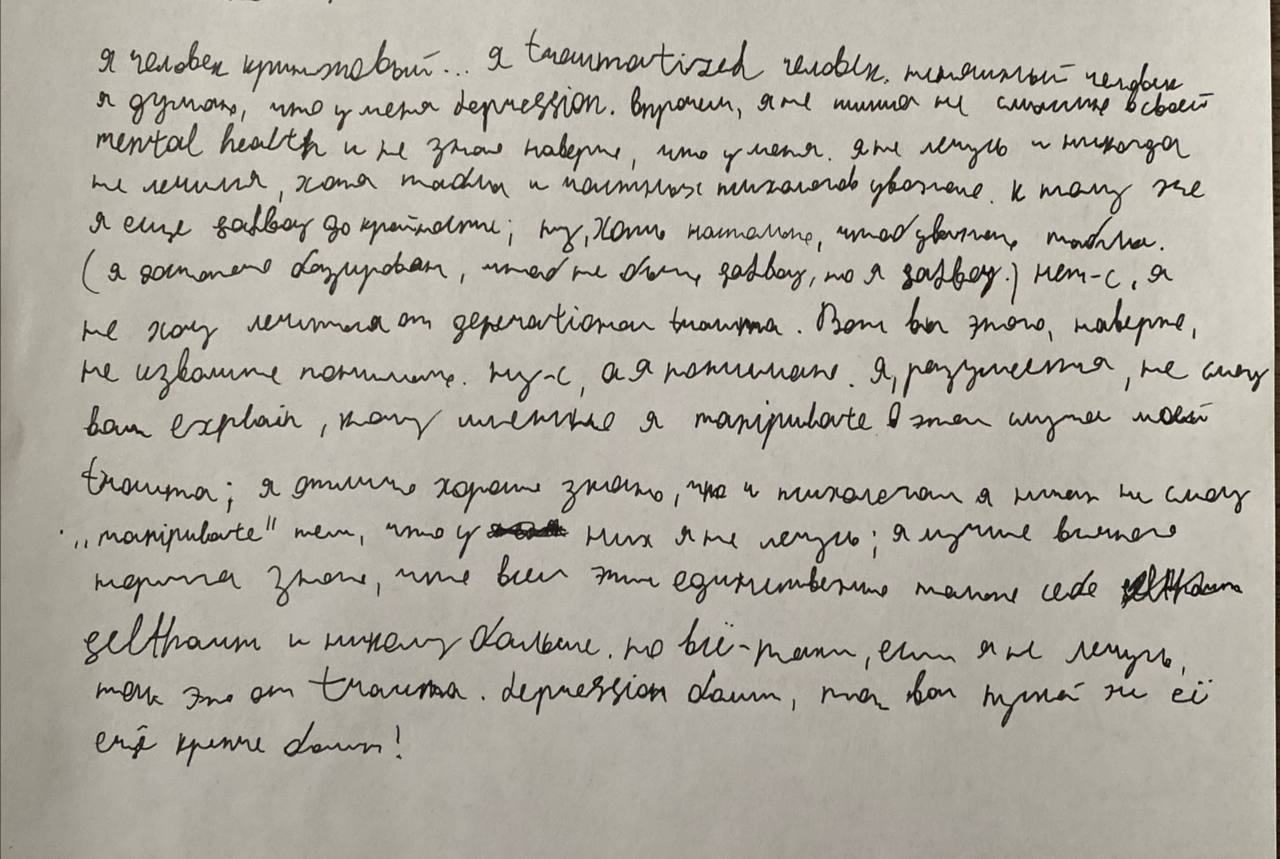 я человек кринжовый... я traumatized человек. тильтовый человек
я думаю, что у меня depression. впрочем, я не шиша не смыслю в своей
mental health и не знаю наверно, что у меня. я не лечусь и никогда
не лечился, хотя таблы и платных психологов уважаю. к тому же
я еще gaslbay до крайности; ну, хоть настолько, чтоб уважать таблы.
(я достаточно базирован, чтоб не быть gaslbay, но я gaslbay.) нет-с, я
не хочу лечиться от generational trauma. Вот вы этого, наверно,
не изволите понимать. ну-с, а я понимаю. Я, разумеется, не смогу
вам explain, кому именно я manipulate в этом случае моей
trauma; я отлично хорошо знаю, что и психологам я никак не смогу
„manipulate" тем, что у них я не лечусь; я лучше всякого
нормиса знаю, что всем этим единственно только себе
selfharm и никому больше. но всё-таки, если я не лечусь,
так это от trauma. depression болит, так вот пускай же её
ещё крепче болит!